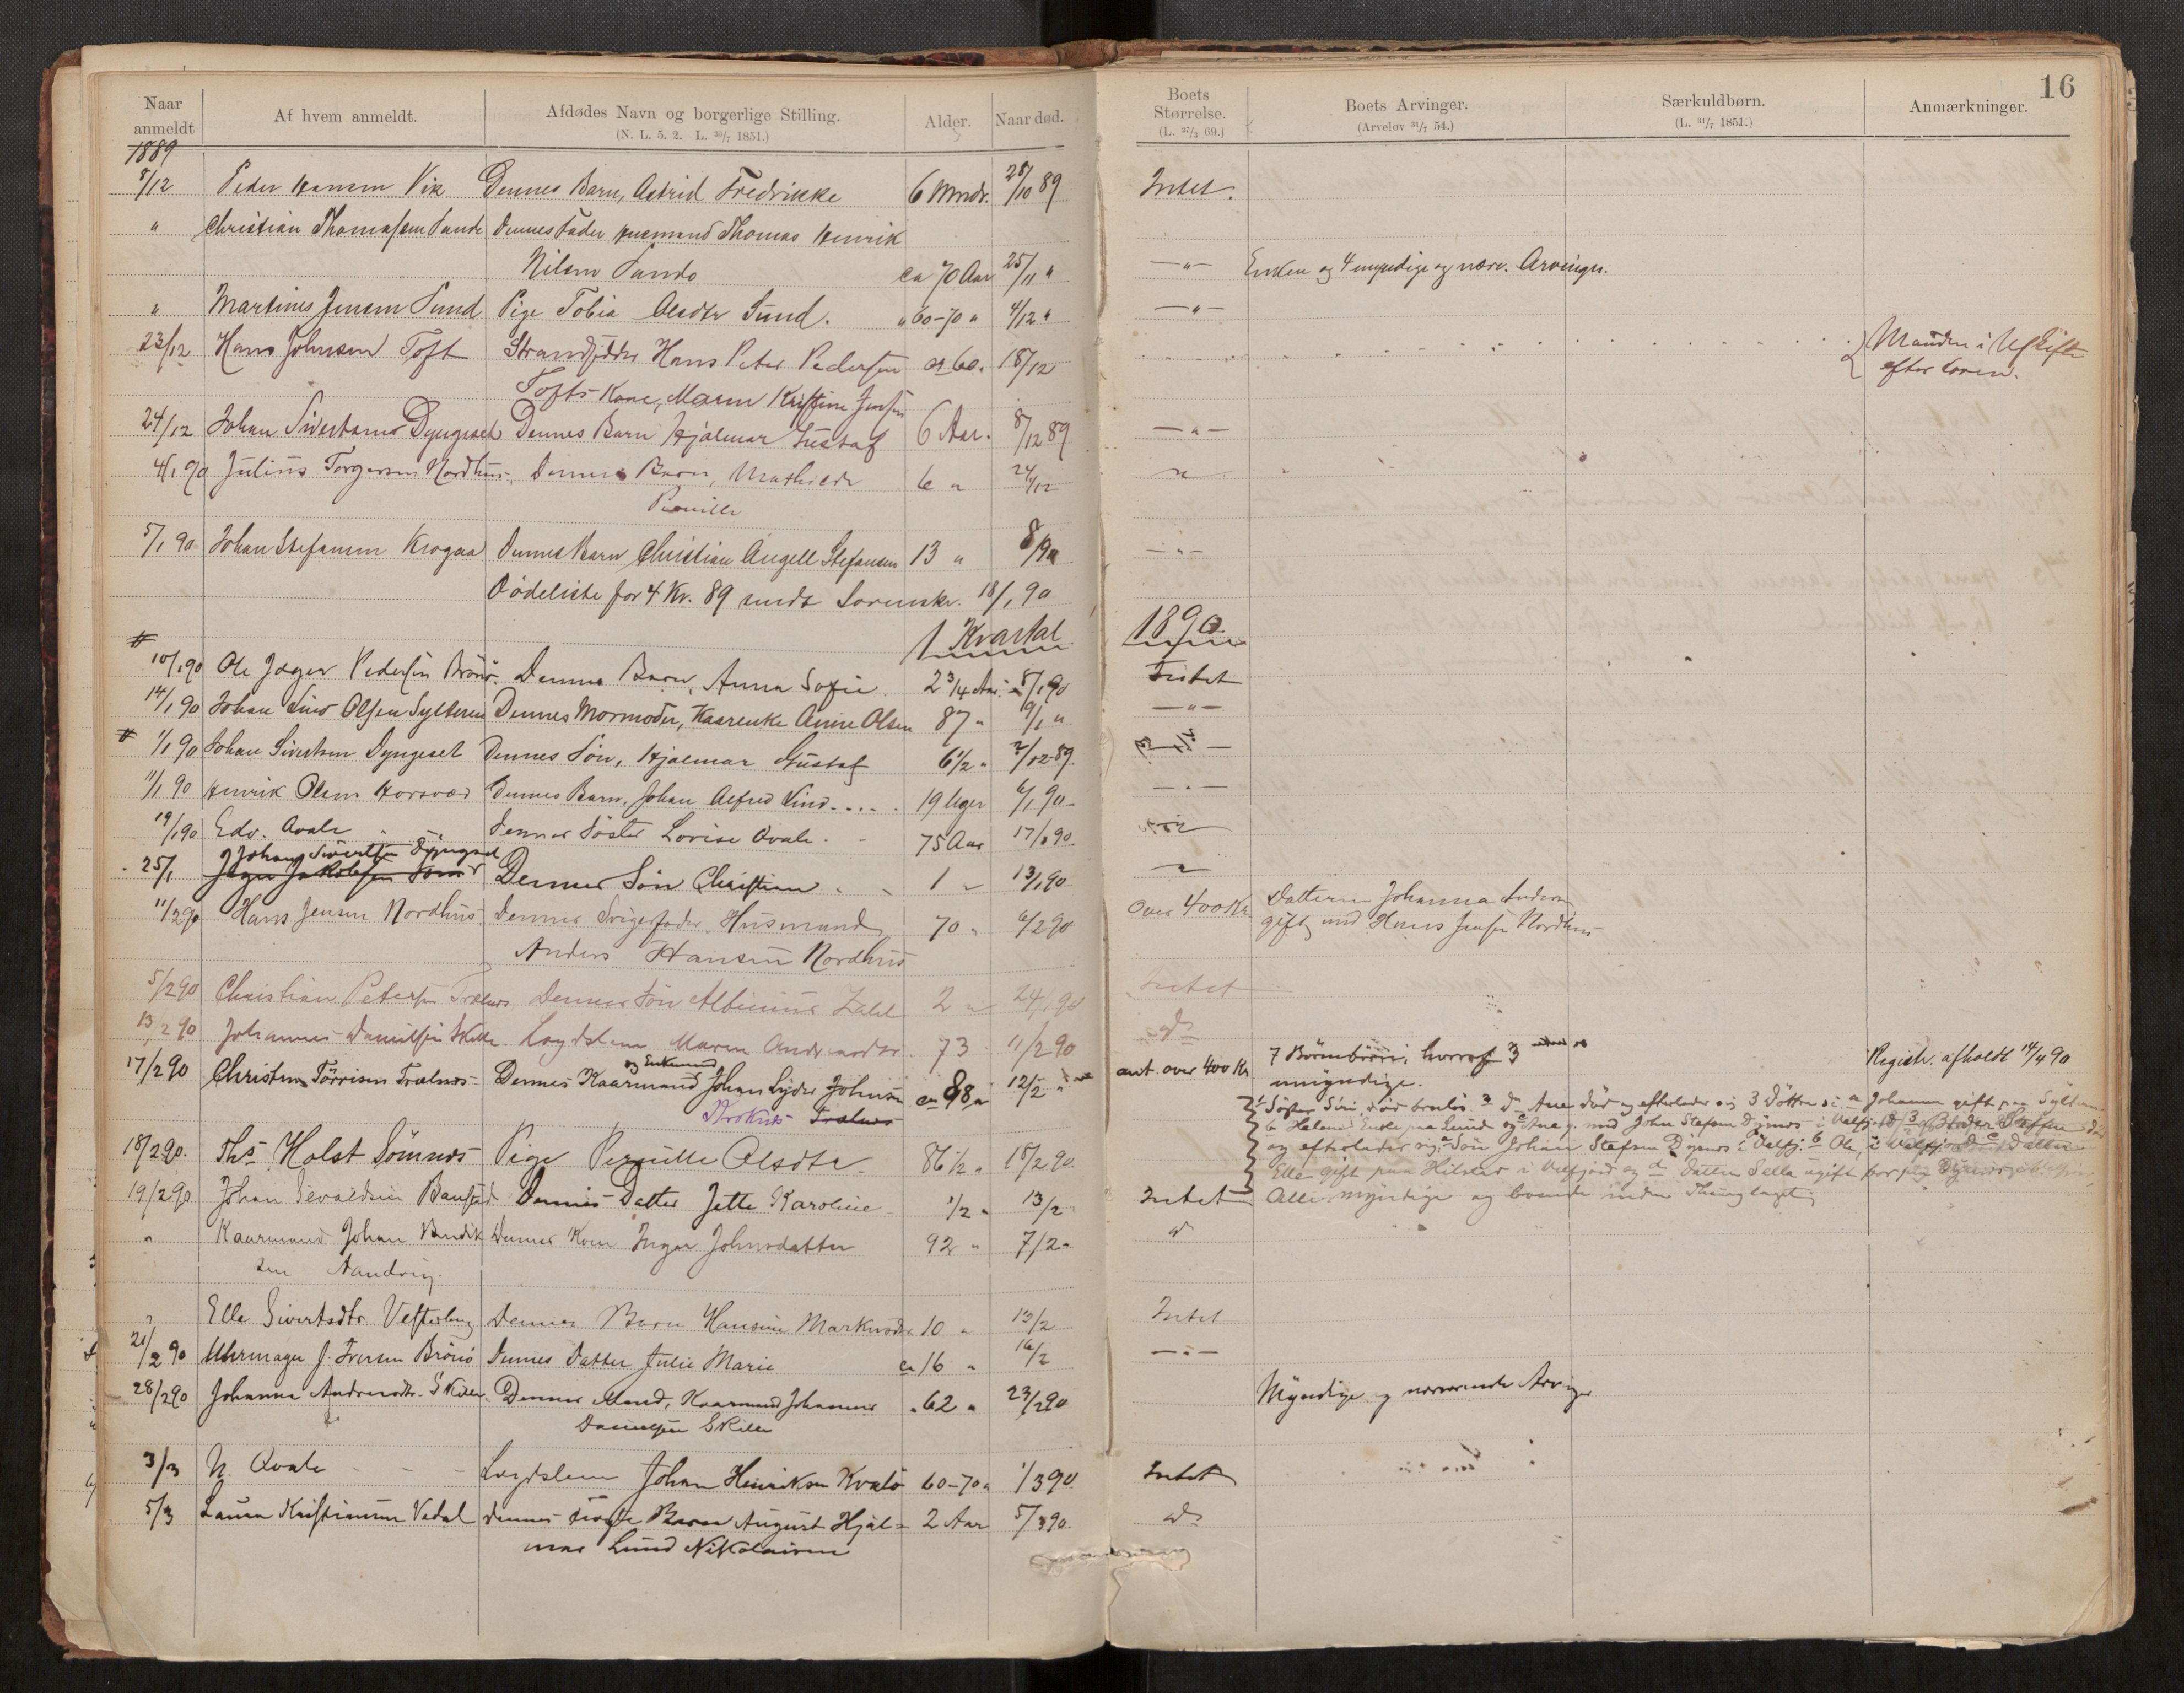 16
Naar anmeldt Af hvem anmeldt. Afdødes Navn og borgerlige Stilling. (N. L. 5. 2. L. 30/7 1851.) Alder. Naar død. Boets Størrelse. (L. 27/3 69.) Boets Arvinger. (Arvelov 31/7 54.) Særkuldbørn. (L. 31/7 1851.) Anmærkninger.
1889
8/12 Peder Hansen Vik Dennes Barn, Astrid Fredrikke 6 Mndr. 28/10 89 Intet.
" Christian Thomassen Sande Dennes Fader Husmand Thomas Henrik
Nilsen Sando ca 70 Aar 25/11 " —"— Enken og 4 myndige og nærv. Arvinger.
" Martines Jensen Sund Pige Tobia Olsdtr Sund. " 60-70 " 4/12 " —"—
23/12 Hans Johnsen Toft Strandsidder Hans Peter Pedersen ca 60. 18/12 Manden i Uskifte
Tofts Kone, Maren Kristine Jensen efter Loven.
24/12 Johan Sivertsen Dyngeset Dennes Barn Hjalmar Gustaf 6 Aar. 8/12 89 —"—
4/1 90 Julius Torgersen Nordhus. Dennes Barn, Mathilde 6 " 24/12 "
Pernille
5/1 90 Johan Stefansen Krogaa Dennes Barn Christian Angell Stefansen 13 " —"—
Dødeliste for 4 Kv. 89 sendt Sorenskr. 18/1 90
1 Kvartal 1890
10/1 90 Ole Jæger Pedersen Brønø. Dennes Barn, Anna Sofie. 2 3/4 Aar 8/1 90 Intet
14/1 90 Johan Lind Olsen Sylteren Dennes Mormoder, Kaarenke Anne Olsen 87 " 9/1 " —"—
1/1 90 Johan Sivertsen Dyngeset Dennes Søn, Hjalmar Gustaf 6 1/2 " 7/12 89.
11/1 90 Henrik Olsen Horsvær Dennes Barn, Johan Alfred Lind 19 Uger 6/1 90 —"—
19/1 90 Edv. Qvale Dennes Søster Lovise Qvale. 75 Aar 17/1 90.
Johan Sivertsen Dyngeset
25/1 Dennes Søn Christian 1 " 13/1 90 "
11/2 90 Hans Jensen Nordhus Dennes Svigerfader, Husmand 70 " 6/2 90 Over 400 Kr. Datteren Johanna Anders
Anders Hansen Nordhus gift med Hans Jensen Nordhus
5/2 90 Christian Petersen Trælnes Dennes Søn Albinius Zahl 2 " 24/1 90 Intet
13/2 90 Johannes Danielsen Skille Lægdslem Maren Andersdtr 73 11/2 90 do
og Enkemand
17/2 90 Christen Tørrisen Trælnes Dennes Kaarmand Johan Lyder Johnsen ca 88 " 12/2 " ant. over 400 Kr. 7 Børnebørn, hvoraf 3 umyndige. Registr. afholdt 14/4 90
Trælnes
18/2 90. Ths Holst Sømnes Pige Pernille Olsdtr. 86 1/2 " 18/2 90.
1 Søster Siri, død barnløs. 2 do Ane død og efterlader sig 3 Døttre: a Johanna gift paa Sylteren
b Helene Enke paa Lund og c Ane g. med John Stefsen Dyrnes i Velfj. 3 Broder Steffen død
og efterlader sig: a Søn Johan Stefsen Dyrnes i Velfj: b Ole, i Velfjord c Datter
Elle gift paa Hilstad i Velfjord og d Datter Sella ugift
19/2 90 Johan Sevaldsen Bansted Dennes Datter Jette Karoline 1/2 " 13/2 " Intet Alle myndige og boende inden Thinglaget
" Kaarmand Johan Bendik Dennes Kone Inger Johnsdatter 92 " 7/2 " do
sen Aandvig.
" Elle Sivertsdtr Vesterberg Dennes Barn Hansine Markusdtr 10 " 13/2 Intet
21/2 90 Uhrmager J. Iversen Brønø Dennes Datter Julie Marie ca 16 " 16/2 —"—
28/2 90 Johanna Andersdtr. Skille. Dennes Mand, Kaarmand Johannes " 62 " 23/2 90 Myndige og nærværende Arvinger
Danielsen Skille
3/3 N. Qvale Lægdslem Johan Henriksen Kvalø 60-70 " 1/3 90 Intet
5/3 Laura Kristiansen Vedal Dennes Barn August Hjal= 2 Aar 5/3 90. do
mar Lund Nikolaisen